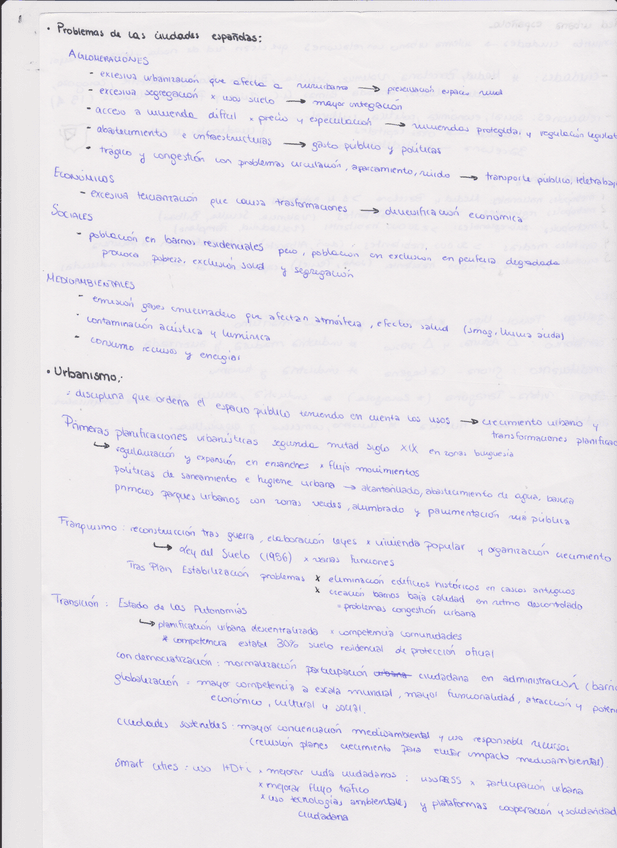 • Problemas de las ciudades españolas:
AGLOMERACIONES
- excesiva urbanización que afecta a → preservación espacio rural
- excesiva segregación x usos suelo → mayor integración
- acceso a vivienda difícil x precio y especulación → viviendas protegidas y regulación legislat
- abastecimiento e infraestructuras → gasto público y políticas
- tráfico y congestión con problemas circulación, aparcamiento, ruido → transporte público, teletrabajo
ECONÓMICOS
- excesiva terciarización que causa trasformaciones → diversificación económica
SOCIALES
- población en barrios residenciales pero, población en exclusión en periferia degradada
provoca pobreza, exclusión social y segregación
MEDIOAMBIENTALES
- emisión gases invernadero que afectan atmósfera, efectos salud (smog, lluvia ácida)
- contaminación acústica y lumínica
- consumo recursos y energías
• Urbanismo:
: disciplina que ordena el espacio público teniendo en cuenta los usos → crecimiento urbano y
transformaciones planificac
Primeras planificaciones urbanísticas segunda mitad siglo XIX en zonas burguesía
↳ regularización y expansión en ensanches x flujo movimientos
políticas de saneamiento e higiene urbana → alcantarillado, abastecimiento de agua, basura
primeros parques urbanos con zonas verdes, alumbrado y pavimentación vía pública
Franquismo: reconstrucción tras guerra, elaboración leyes x vivienda popular y organización crecimiento
↳ Ley del Suelo (1956) x varias funciones
Tras Plan Estabilización problemas x eliminación edificios históricos en cascos antiguos
x creación barrios baja calidad en ritmo descontrolado
= problemas congestión urbana
Transición: Estado de las Autonomías
↳ planificación urbana descentralizada x competencia comunidades
* competencia estatal 30% suelo residencial de protección oficial
con democratización: normalización participación urbana ciudadana en administración (barrio
globalización: mayor competencia a escala mundial, mayor funcionalidad, atracción y poten
económico, cultural y social.
ciudades sostenibles: mayor concienciación medioambiental y uso responsible recursos
(revisión planes crecimiento para evitar impacto medioambiental)
Smart cities: uso I+D+i x mejorar vida ciudadanos: uso RRSS x participación urbana
x mejorar flujo tráfico
x uso tecnologías ambientales y plataformas cooperación y solidaridad
ciudadana